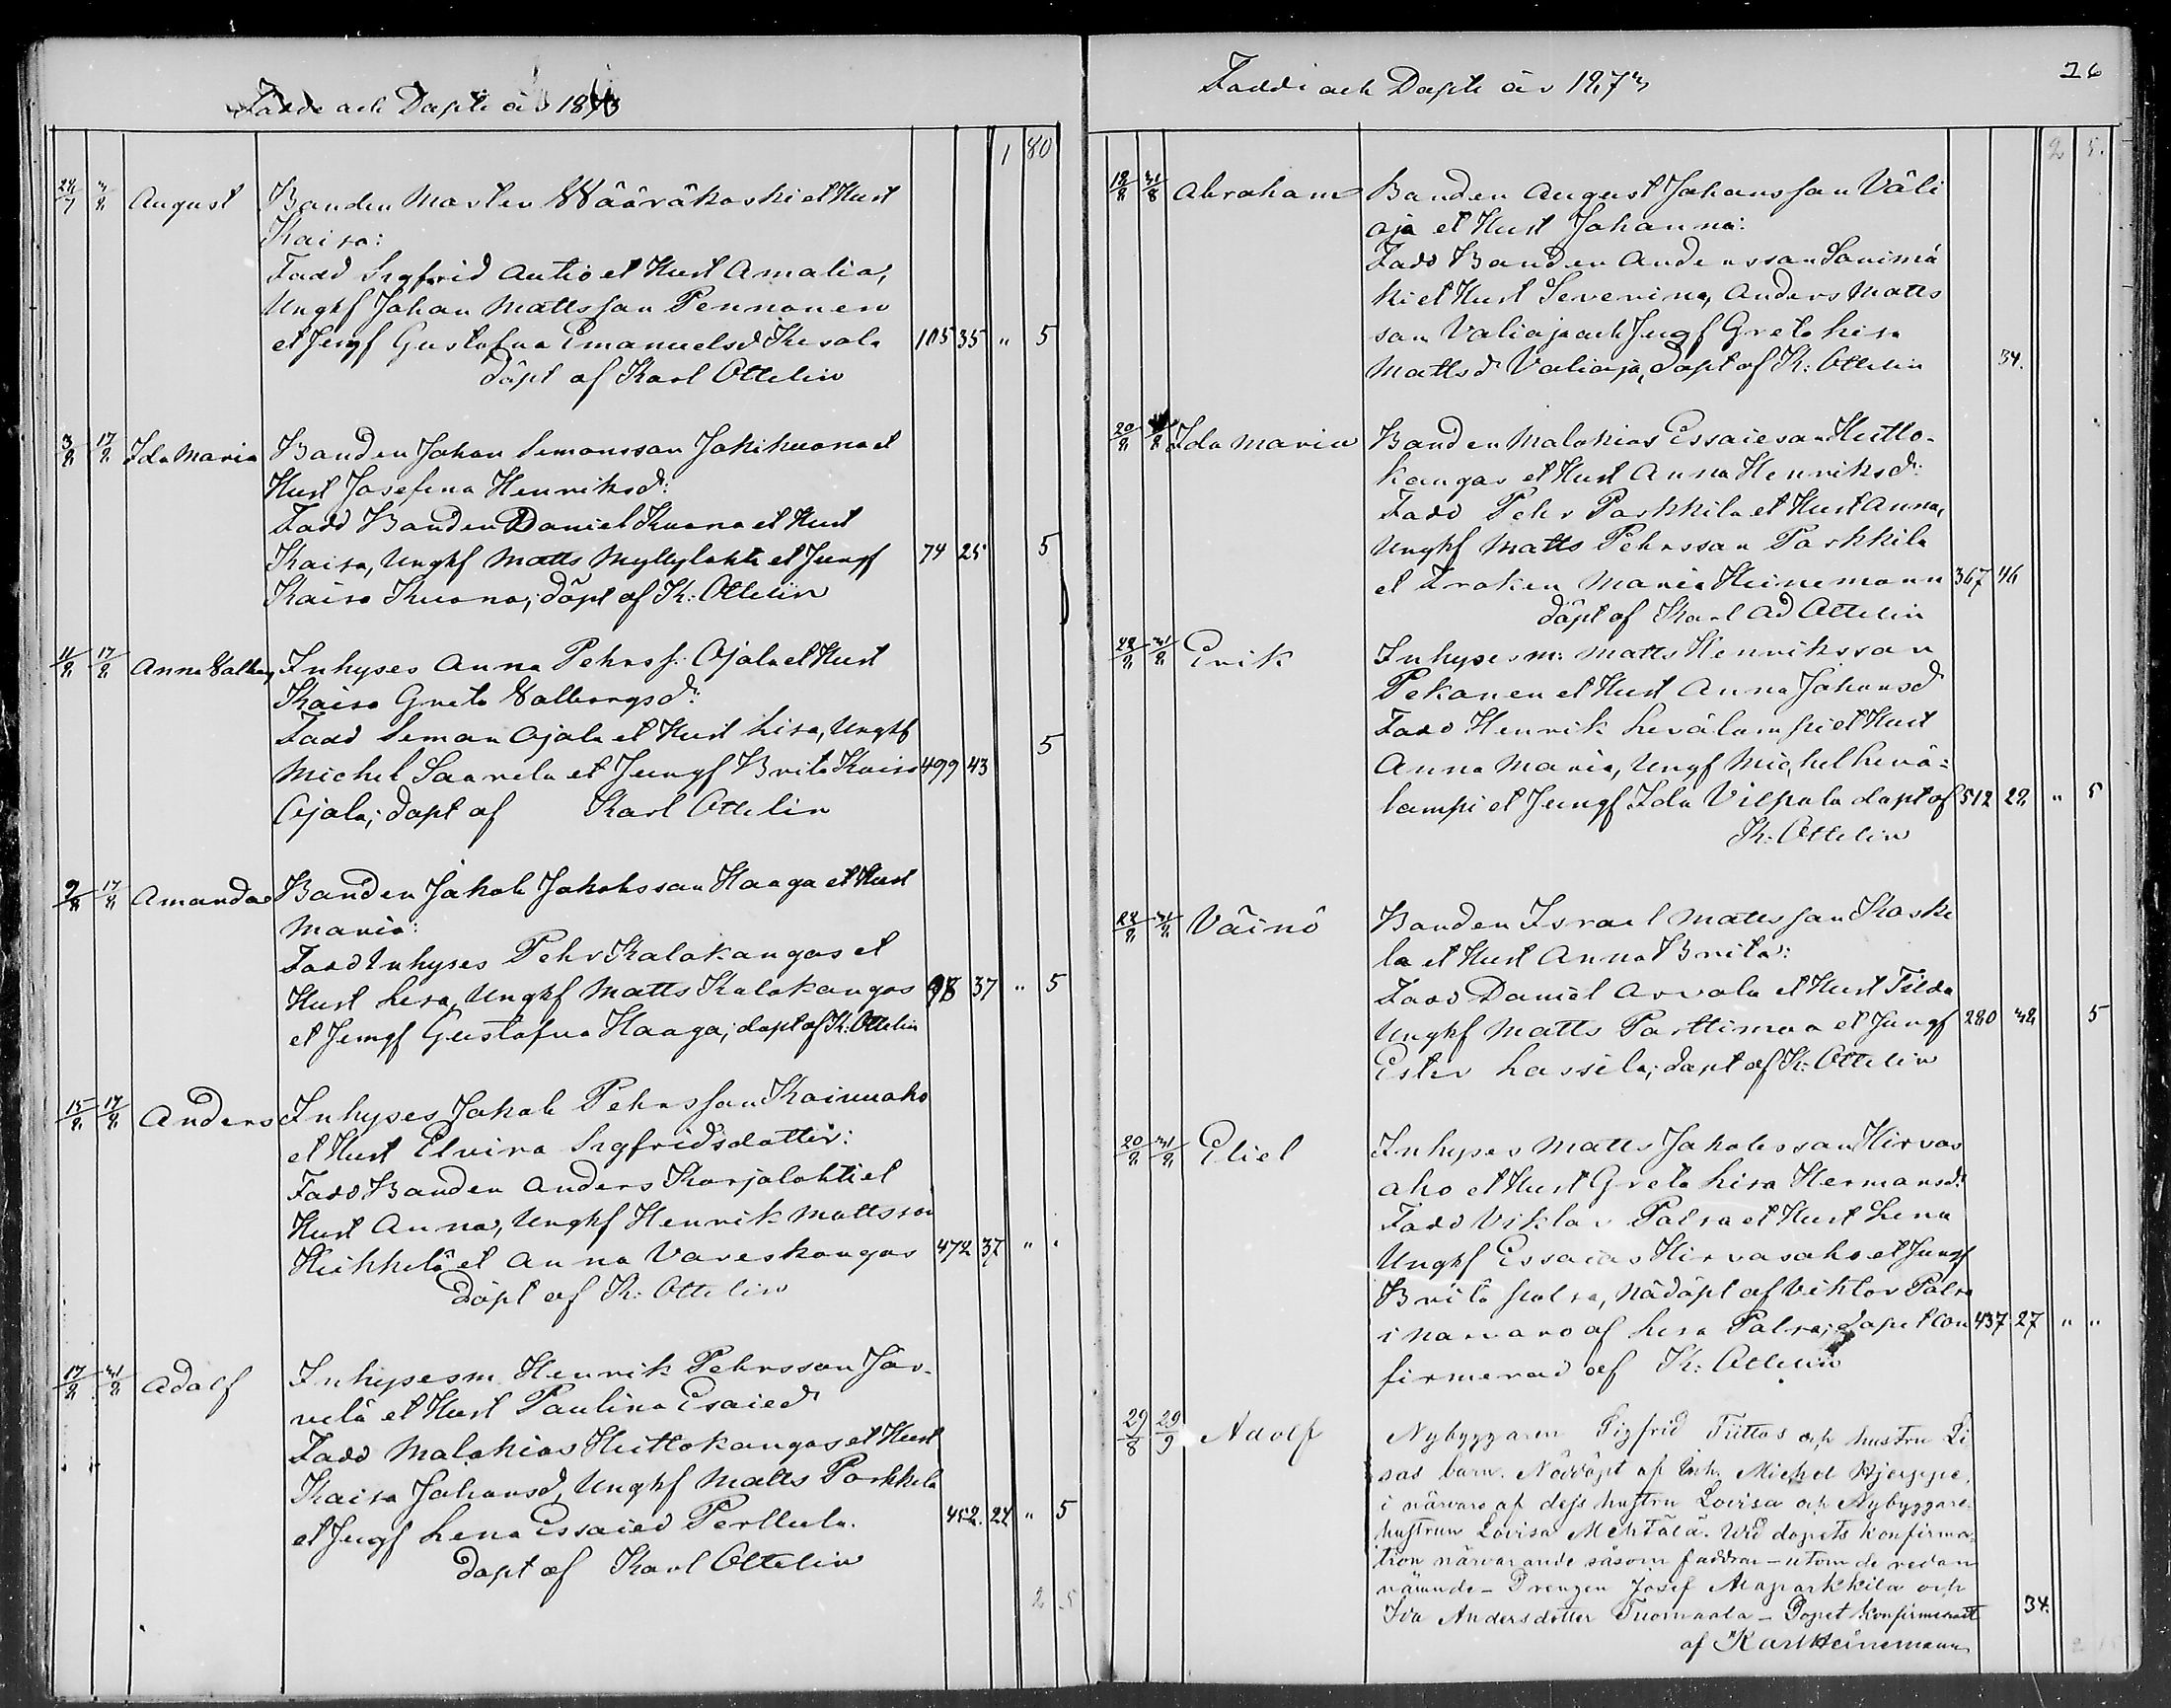 Födde och Döpte år 1873
1 80
24/7 31/8 August Bonden Marten Wääräkoski et Hust
Kaisa:
Fadd Sigfrid Autio et Hust Amalia,
Ungkf Johan Mattsson Pennanen
et Jungf Gustafva Emanuelsd Kesola 105 35 " 5
döpt af Karl Ottelin
3/8 17/8 Ida Maria Bonden Johan Simonsson Jokikuona et
Hust Josefina Henriksdr:
Fadd Bonden Daniel Kuona et Hust
Kaisa, Ungkf Matts Myllylahti et Jungf 74 25 5
Kaisa Kuona; döpt af K: Ottelin
11/8 17/8 Anna Valborg Inhyses Anna Pehrss: Ojala et Hust
Kaisa Greta Valborgsdr:
Fadd Seman Ojala et Hust Lisa, Ungkf 5
Michel Saarela et Jungf Brita Kaisa 499 43
Ojala; döpt af Karl Ottelin
9/8 17/8 Amanda Bonden Jakob Jakobsson Haaga et Hust
Maria:
Fadd Inhyses Pehr Kalakangas et
Hust Lisa, Ungkf Matts Kalakangas 98 37 " 5
et Jungf Gustafva Haaga; döpt af K: Ottelin
15/8 17/8 Anders Inhyses Jakob Pehrsson Kainuaho
et Hust Elvira Sigfridsdotter:
Fadd Bonden Anders Karjalahti et
Hust Anna, Ungkf Henrik Mattsson
Heikkilä et Anna Vareskangas 472 37 " "
döpt af K: Ottelin
17/8 31/8 Adolf Inhysesm Henrik Pehrsson Jär-
velä et Hust Paulina Esaied
Fadd Malakias Huttokangas et Hust
Kaisa Johansd, Ungkf Matts Parkkila
et Jungf Lena Essaied Perttula. 452. 24 " 5
döpt af Karl Ottelin
2 5
Födde och Döpte år 1873
26
2 5.
18/8 31/8 Abraham Bonden August Johansson Väli
oja et Hust Johanna:
Fadd Bonden Anderssan Savimä
ki et Hust Severina, Anders Matts
son Välioja och Jungf Greta Lisa
Mattsdr Välioja, döpt af K: Ottelin 34.
20/8 Ida Maria Bonden Malakias Essaieson Hutto-
kangas et Hust Anna Henriksdr:
Fadd Pehr Parkkila et Hust Anna,
Ungkf Matts Pehrsson Parkkila
et Fröken Maria Heinemann 367 46
döpt af Karl Ad Ottelin
22/8 31/8 Erik Inhysesm: Matts Henriksson
Pekonen et Hust Anna Johansd
Fadd Henrik Levälampi et Hust
Anna Maria, Ungf Michel Levä=
lampi et Jungf Ida Vilpola döpt af 512 22 " 5
K: Ottelin
22/8 31/8 Väinö Bonden Israel Mattsson Koski
la et Hust Anna Brita:
Fadd Daniel Arvola et Hust Tilda
Ungkf Matts Parttimaa et Jungf 280 42 5
Ester Lassila; döpt af K: Ottelin
20/8 31/8 Eliel Inhyses Matts Jakobsson Hirvas
aho et Hust Greta Lisa Hermansdr
Fadd Viktor Palra et Hust Lena
Ungkf Essaias Hirvasaho et Jungf
Brita Palra, Nöddöpt af Viktor Palra
i närvaro af Lisa Palra; dopet con 437 27 " "
firmerad af K: Ottelin
29/8 29/9 Adolf Nybyggaren Sigfrid Tiittos och hustru Li
sas barn. Nöddöpt af Inh. Michel Hjerppe,
i närvaro af dess hustru Lovisa och Nybyggare
hustrun Lovisa Mehtälä. Wid dopets konfirma-
tion närvarande såsom faddrar – utom de redan
nämnde – Drengen Josef Alaparkkila och
Ida Andersdotter Tuomaala – Dopet konfirmeradt 34.
af Karl Heinemann